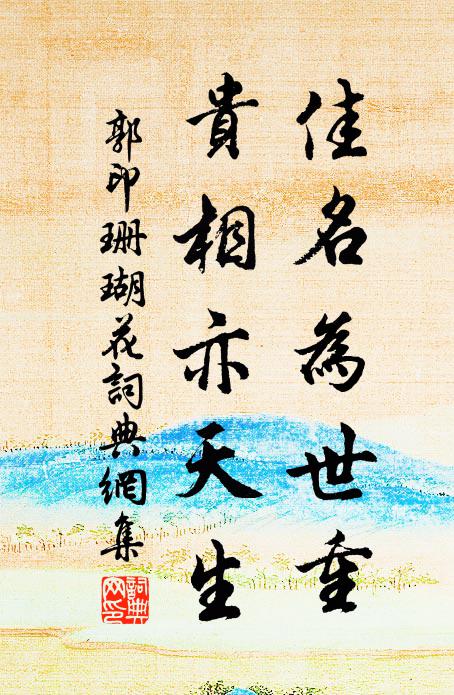 佳名為世重
貴相亦天生
郭印珊瑚花詞典網集
詞典
网印